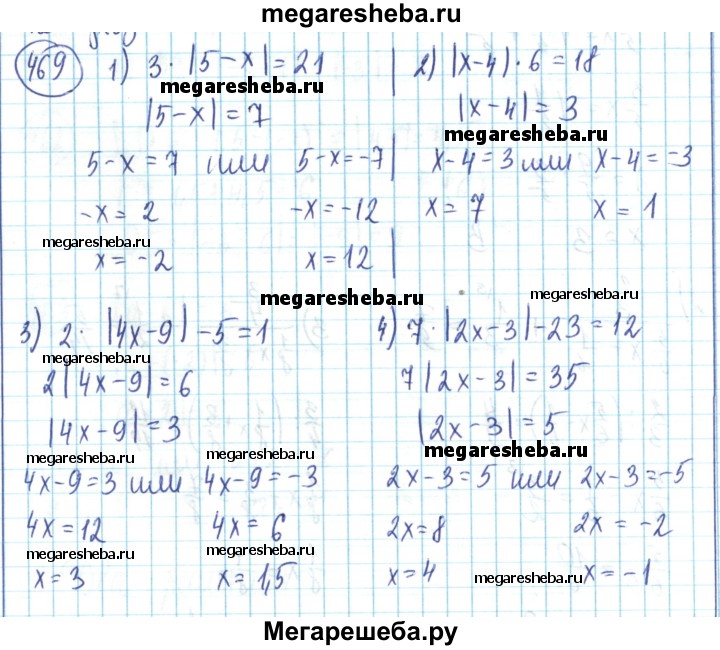 megaresheba.ru
469 1) 3 · |5 - x| = 21
megaresheba.ru
|5 - x| = 7
5 - x = 7 или 5 - x = -7
-x = 2 -x = -12
megaresheba.ru
x = -2 x = 12
2) |x - 4| · 6 = 18
|x - 4| = 3
megaresheba.ru
x - 4 = 3 или x - 4 = -3
x = 7 x = 1
megaresheba.ru
megaresheba.ru
3) 2 · |4x - 9| - 5 = 1
2|4x - 9| = 6
|4x - 9| = 3
megaresheba.ru megaresheba.ru
4x - 9 = 3 или 4x - 9 = -3
4x = 12 4x = 6
megaresheba.ru megaresheba.ru
x = 3 x = 1,5
megaresheba.ru
4) 7 · |2x - 3| - 23 = 12
7|2x - 3| = 35
|2x - 3| = 5
megaresheba.ru
2x - 3 = 5 или 2x - 3 = -5
2x = 8 2x = -2
x = 4 megaresheba.ru x = -1
Мегарешеба.ру